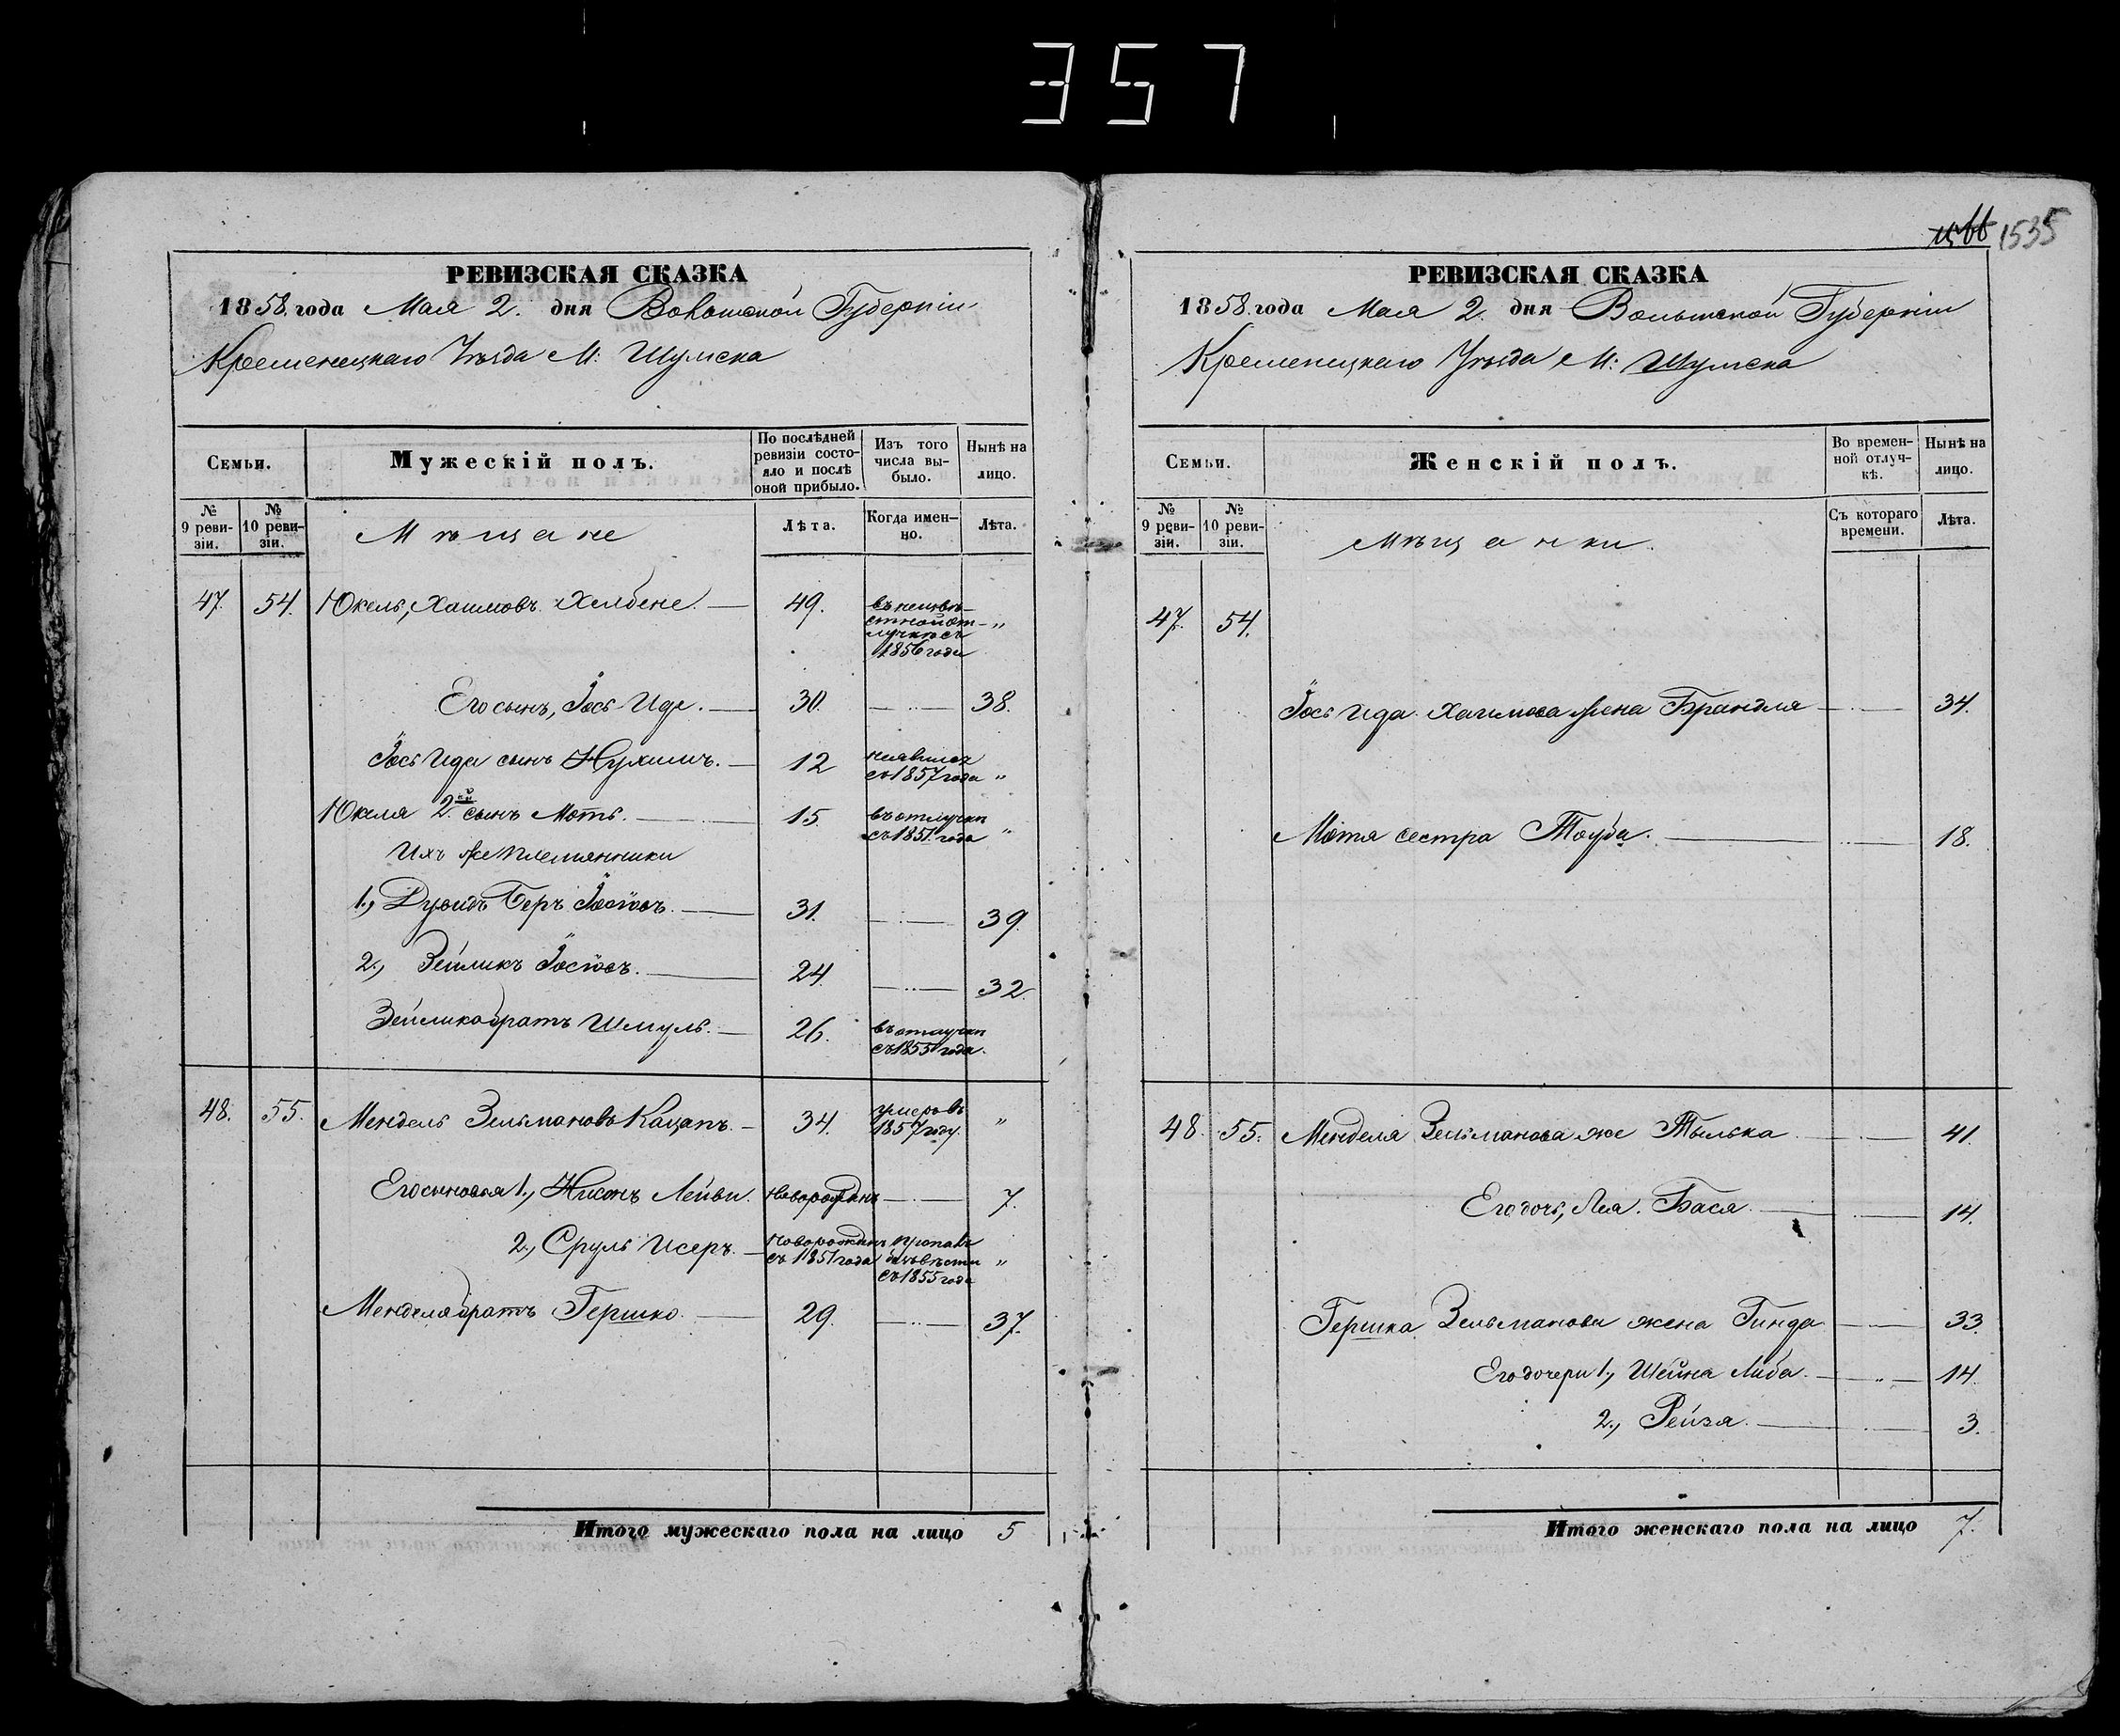 357
1535
РЕВИЗСКАЯ СКАЗКА
1858. года Мая 2. дня Волынской Губерніи
Кременецкаго Уѣзда М: Шумска
Семьи.
Мужескій полъ.
По послѣдней ревизіи состояло и послѣ оной прибыло.
Изъ того числа выбыло.
Нынѣ на лицо.
№ 9 ревизіи.
№ 10 ревизіи.
Мѣщане
Лѣта.
Когда именно.
Лѣта.
47. 54. Юкель, Хаимовъ 49. въ неизвѣстной отлучкѣ съ 1856 года "
Его сынъ, Іось Иде. 30. 38.
Іось Ида сынъ Нухимъ. 12 неявился съ 1857 года "
Юкеля 2й сынъ Моть. 15. въ отлучкѣ съ 1851 года "
Ихъ же племянники
1., Дувидъ Беръ Іосіовъ. 31. 39.
2., Зейликъ Іосіовъ. 24. 32.
Зейлика братъ Шмуль. 26. въ отлучкѣ съ 1855 года.
48. 55. Мендель Зельмановъ Кацапъ. 34. умеръ въ 1857 году. "
Его сыновья 1., Нисонъ Лейви. Новорожден 7.
2., Сруль Исеръ. Новорожден съ 1851 года пропалъ безъ вѣсти съ 1855 года "
Менделя братъ Гершко. 29. 37.
Итого мужескаго пола на лицо 5
РЕВИЗСКАЯ СКАЗКА
1858. года Мая 2. дня Волынской Губерніи
Кременецкаго Уѣзда М: Шумска
Семьи.
Женскій полъ.
Во временной отлучкѣ.
Нынѣ на лицо.
№ 9 ревизіи.
№ 10 ревизіи.
Мѣщанки.
Съ котораго времени.
Лѣта.
47. 54.
Іось Ида Хаимова жена Брандля 34.
Мотя сестра Тоуба. 18.
48. 55. Менделя Зельманова же Тылька 41.
Его дочь, Лея. Бася. 14.
Гершка Зельманова жена Гинда 33.
Его дочери 1., Шейна Либа. 14.
2., Рейзя. 3.
Итого женскаго пола на лицо 7.